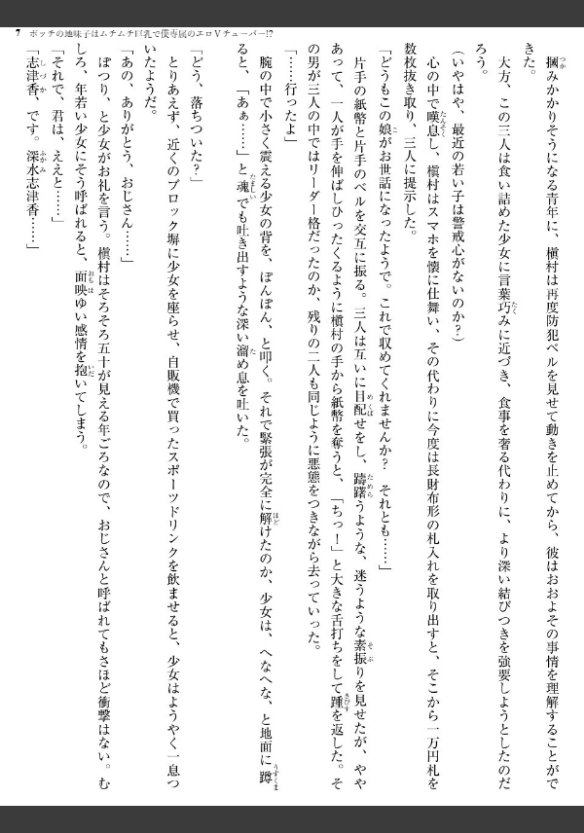 7 ボッチの地味子はムチムチ巨乳で僕専属のエロVチューバー!?
摑みかかりそうになる青年に、槇村は再度防犯ベルを見せて動きを止めてから、彼はおおよその事情を理解することがで
きた。
大方、この三人は食い詰めた少女に言葉巧みに近づき、食事を奢る代わりに、より深い結びつきを強要しようとしたのだ
ろう。
(いやはや、最近の若い子は警戒心がないのか?)
心の中で嘆息し、槇村はスマホを懐に仕舞い、その代わりに今度は長財布形の札入れを取り出すと、そこから一万円札を
数枚抜き取り、三人に提示した。
「どうもこの娘がお世話になったようで。これで収めてくれませんか? それとも……」
片手の紙幣と片手のベルを交互に振る。三人は互いに目配せをし、躊躇うような、迷うような素振りを見せたが、やや
あって、一人が手を伸ばしひったくるように槇村の手から紙幣を奪うと、「ちっ!」と大きな舌打ちをして踵を返した。そ
の男が三人の中ではリーダー格だったのか、残りの二人も同じように悪態をつきながら去っていった。
「……行ったよ」
腕の中で小さく震える少女の背を、ぽんぽん、と叩く。それで緊張が完全に解けたのか、少女は、へなへな、と地面に蹲
ると、「あぁ……」と魂でも吐き出すような深い溜め息を吐いた。
「どう、落ちついた?」
とりあえず、近くのブロック塀に少女を座らせ、自販機で買ったスポーツドリンクを飲ませると、少女はようやく一息つ
いたようだ。
「あの、ありがとう、おじさん……」
ぽつり、と少女がお礼を言う。槇村はそろそろ五十が見える年ごろなので、おじさんと呼ばれてもさほど衝撃はない。む
しろ、年若い少女にそう呼ばれると、面映ゆい感情を抱いてしまう。
「それで、君は、ええと……」
「志津香、です。深水志津香……」